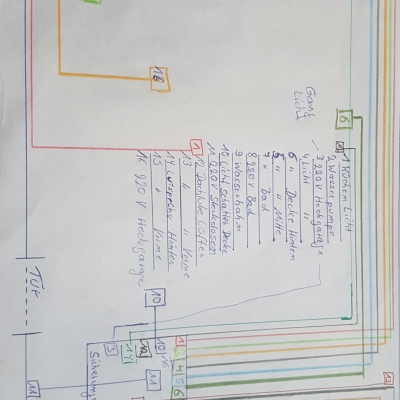 Gang
Licht
6
1 Küchen Licht
2 Wasserpumpe
3 220V Heckgarage
4 Licht "
6 " Decke Hinten
5 " " Mitte
7 " Bad
8 220 V Bad
9 Wasserhahn
10 Lichtschalter Decke
11 220V Steckdosen
12 Dachluke Lüfter
13 " " Vorne
14 Lutsprecher Hinten
15 " Vorne
16 220 V Heckgarage
1
16
Tür
10
11
11
3
14
10
1
4
5
6
Sicherung